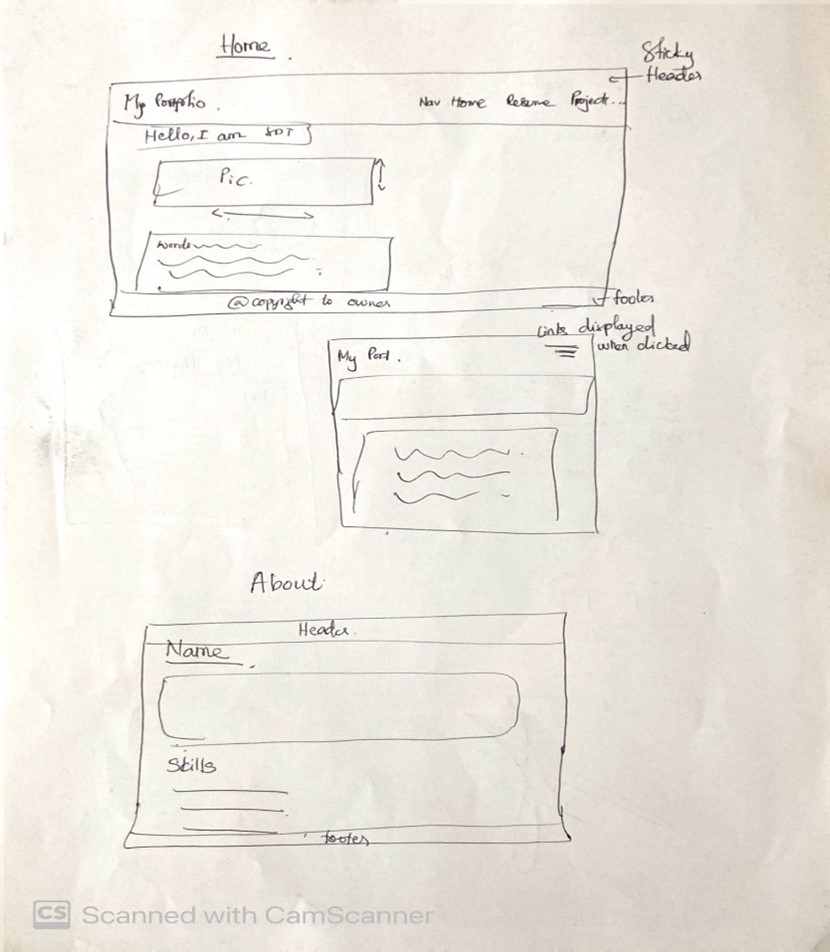 Home
Sticky
Header
My Portfolio.
Nav Home Resume Project...
Hello, I am SDT
Pic.
Words
@copyright to owner
footer
Links displayed
when clicked
My Port.
About
Header.
Name
Skills
footer
CS Scanned with CamScanner